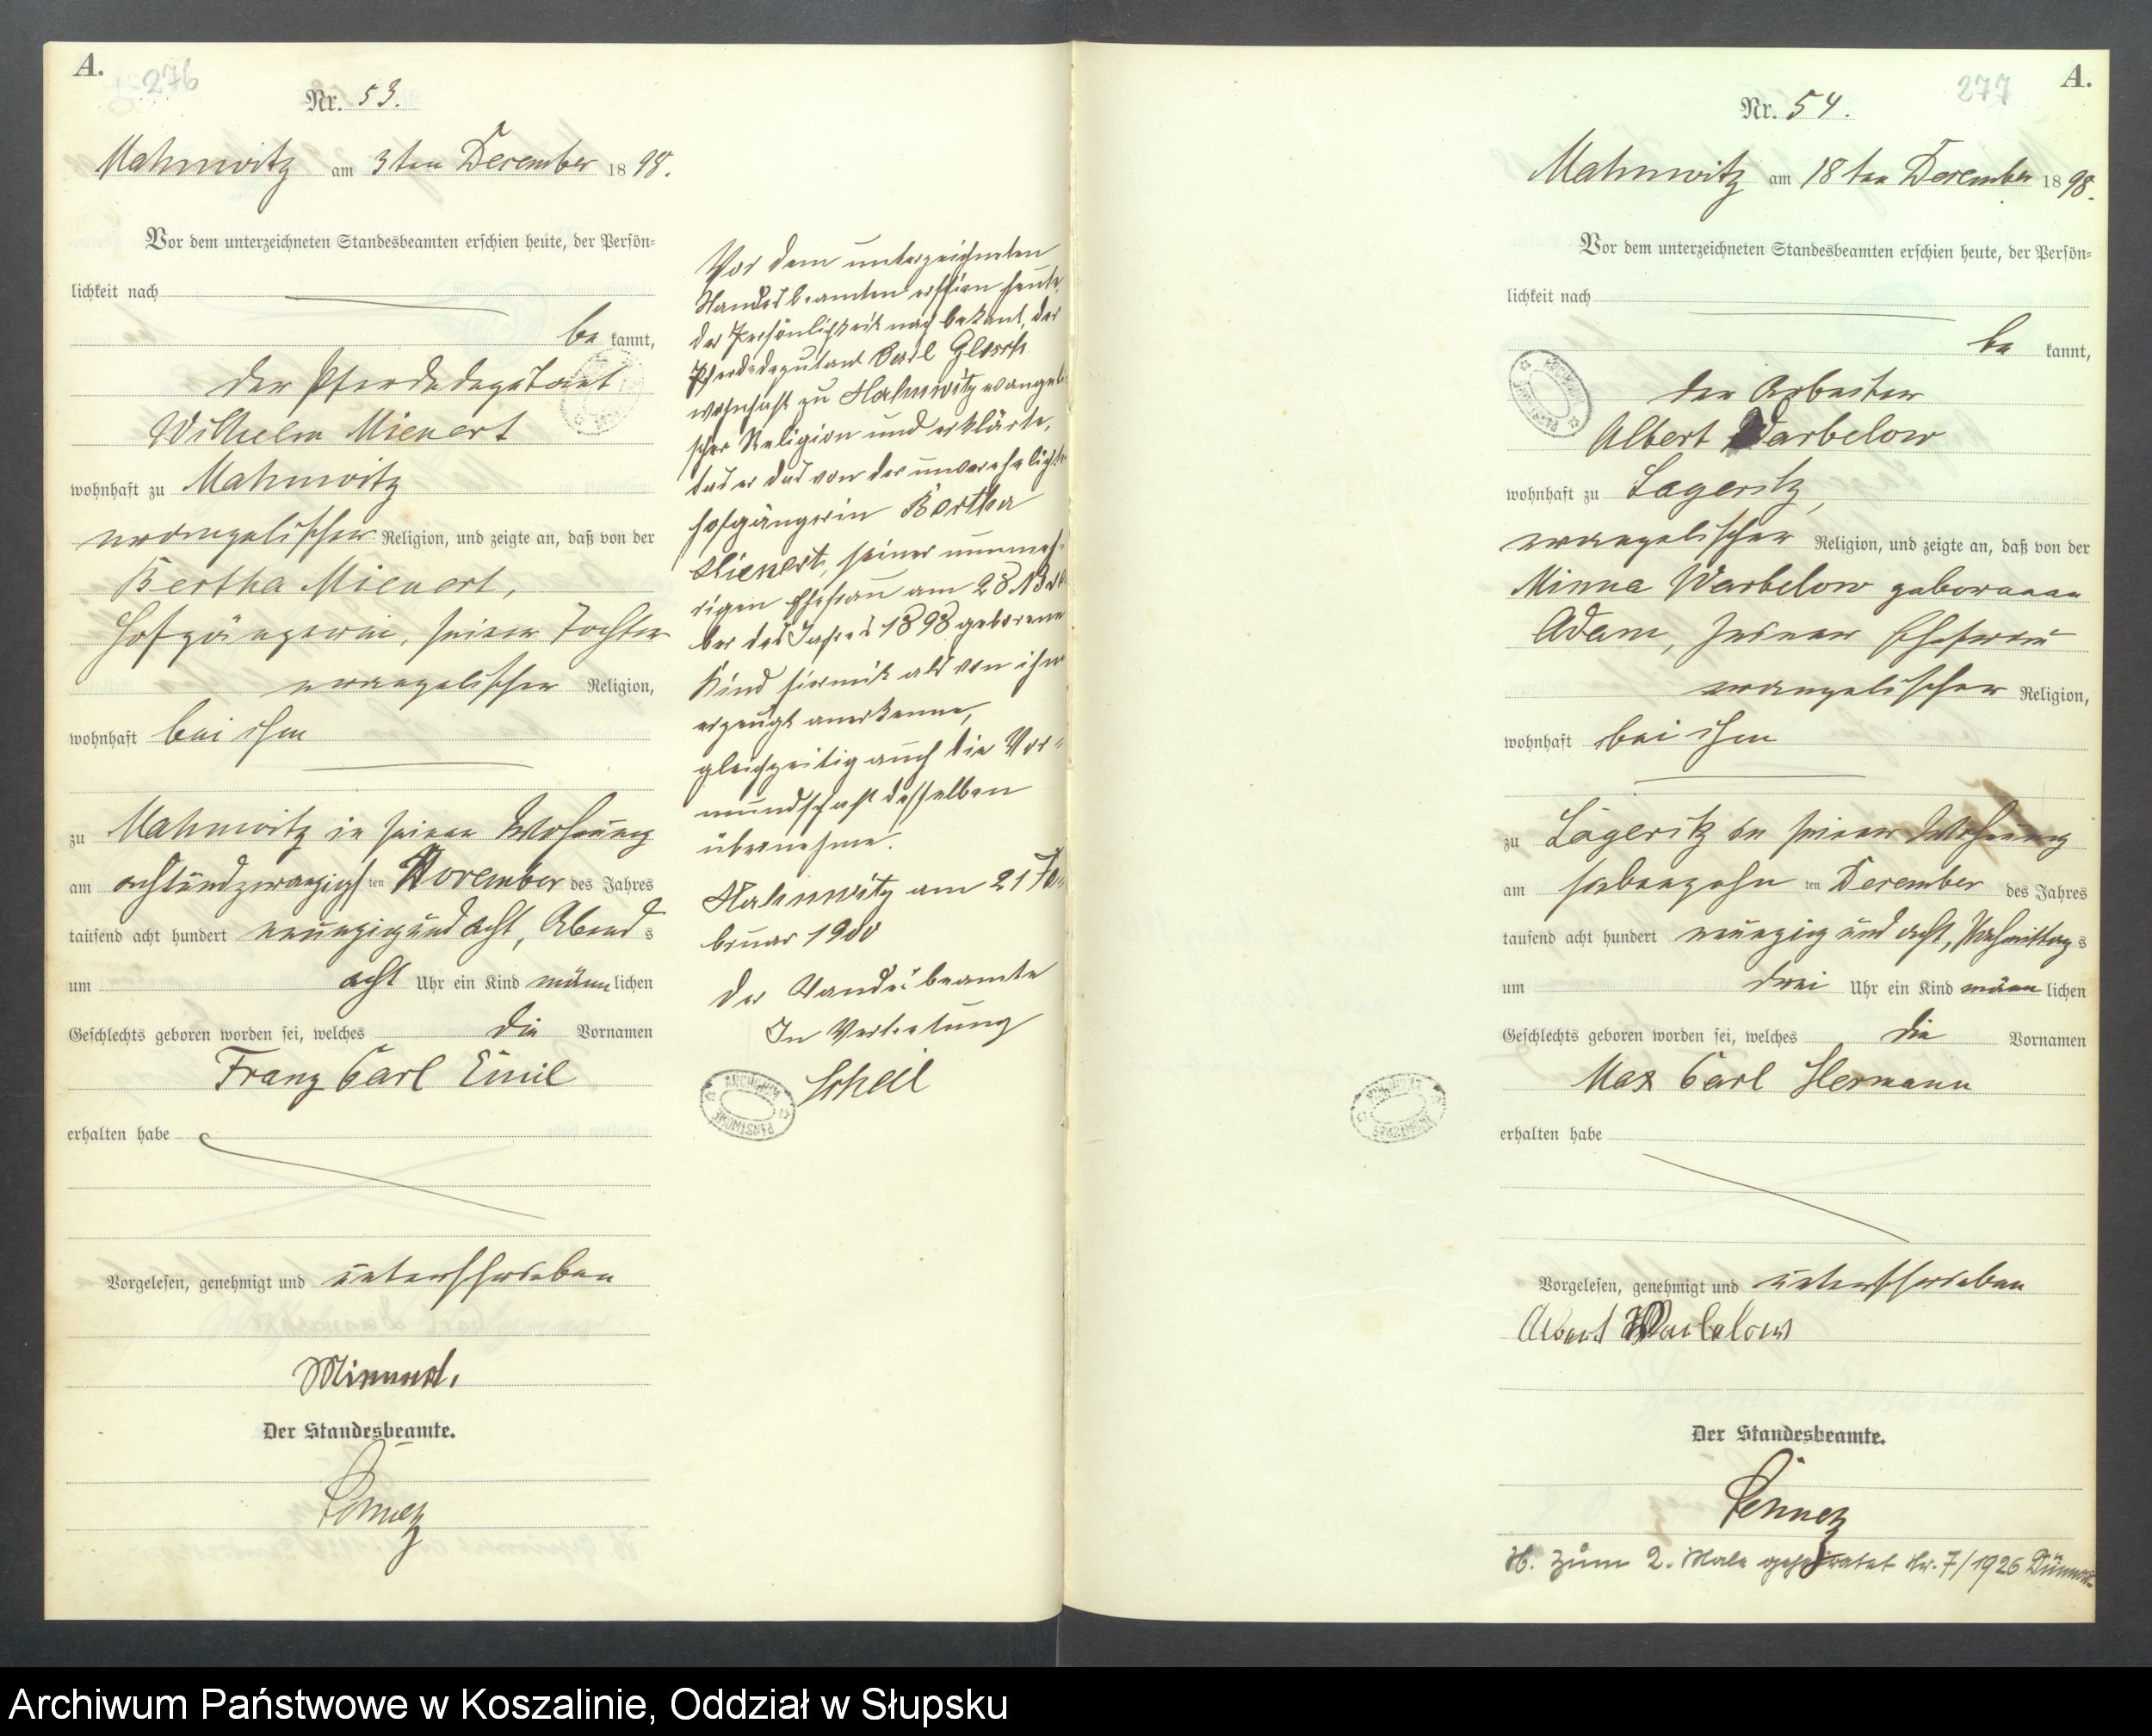 A.
276
Nr. 53.
Mahnwitz am 3ten December 1898.
Vor dem unterzeichneten Standesbeamten erschien heute, der Persön=
lichkeit nach
be kannt,
der Pferdedeputant
Wilhelm Mienert
wohnhaft zu Mahnwitz
evangelischer Religion, und zeigte an, daß von der
Bertha Mienert,
Hofgängerin, seiner Tochter
evangelischer Religion,
wohnhaft bei ihm
zu Mahnwitz in seiner Wohnung
am achtundzwanzigsten November des Jahres
tausend acht hundert neunzig und acht, Abends
um acht Uhr ein Kind männlichen
Geschlechts geboren worden sei, welches die Vornamen
Franz Carl Emil
erhalten habe
Vorgelesen, genehmigt und unterschrieben
Mienert.
Der Standesbeamte.
Vor dem unterzeichneten
Standesbeamten erschien heute,
der Persönlichkeit nach bekant, der
Pferdedeputant Carl
wohnhaft zu Mahnwitz evangeli=
scher Religion und erklärte,
das er das von der unverehelichten
Hofgängerin Bertha
Mienert, seiner nunmeh=
rigen Ehefrau am 28 Novem
ber des Jahres 1898 geborene
Kind hiermit als von ihm
erzeugt anerkenne,
gleichzeitig auch die Vor=
mundschaft desselben
übernehme.
Mahnwitz am 21 Fe=
bruar 1900
Der Standesbeamte
In Vertretung
Scheil
ARCHIWUM PAŃSTWOWE
277
A.
Nr. 54.
Mahnwitz am 18ten December 1898.
Vor dem unterzeichneten Standesbeamten erschien heute, der Persön=
lichkeit nach
be kannt,
der Arbeiter
Albert Warbelow
wohnhaft zu Lageritz,
evangelischer Religion, und zeigte an, daß von der
Minna Warbelow geborenen
Adam, seiner Ehefrau
evangelischer Religion,
wohnhaft bei ihm
zu Lageritz in seiner Wohnung
am siebenzehnten December des Jahres
tausend acht hundert neunzig und acht, Nachmittags
um drei Uhr ein Kind männlichen
Geschlechts geboren worden sei, welches die Vornamen
Max Carl Hermann
erhalten habe
Vorgelesen, genehmigt und unterschrieben
Albert Warbelow
Der Standesbeamte.
H. zum 2. Male geheiratet Nr. 7/1926
Archiwum Państwowe w Koszalinie, Oddział w Słupsku